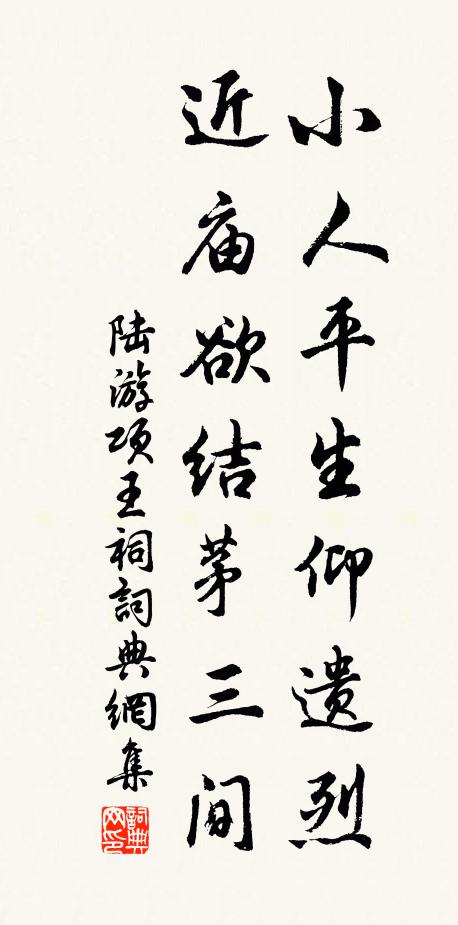 小人平生仰遗烈
近庙欲结茅三间
陆游项王祠詞典網集
詞典网印